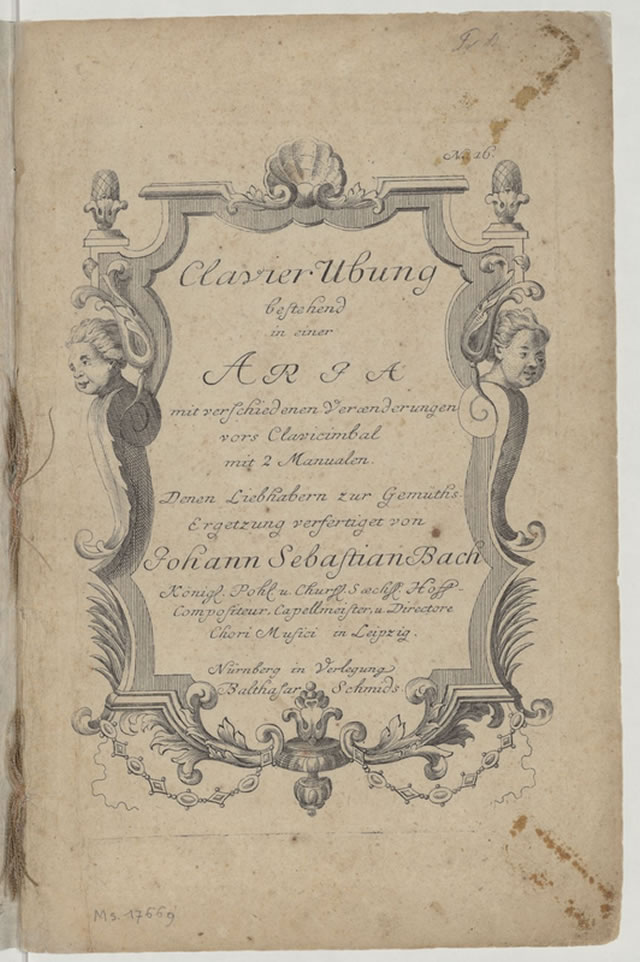 No. 16.
Clavier Ubung
bestehend
in einer
ARIA
mit verschiedenen Verænderungen
vors Clavicimbal
mit 2 Manualen.
Denen Liebhabern zur Gemüths-
Ergetzung verfertiget von
Johann Sebastian Bach
Königl. Pohl. u. Churfl. Sæchss. Hoff-
Compositeur, Capellmeister, u. Directore
Chori Musici in Leipzig.
Nürnberg in Verlegung
Balthasar Schmids.
Ms. 17669